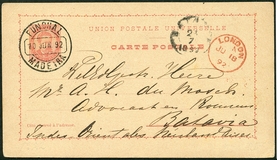 UNION POSTALE UNIVERSELLE
CARTE POSTALE
FUNCHAL
10 JUN. 92
MADEIRA
LONDON
JU 18
92
Heere
Mr. A. H. du Mosch
Advocaat en
Batavia
Indes Orientales Neerlandaises